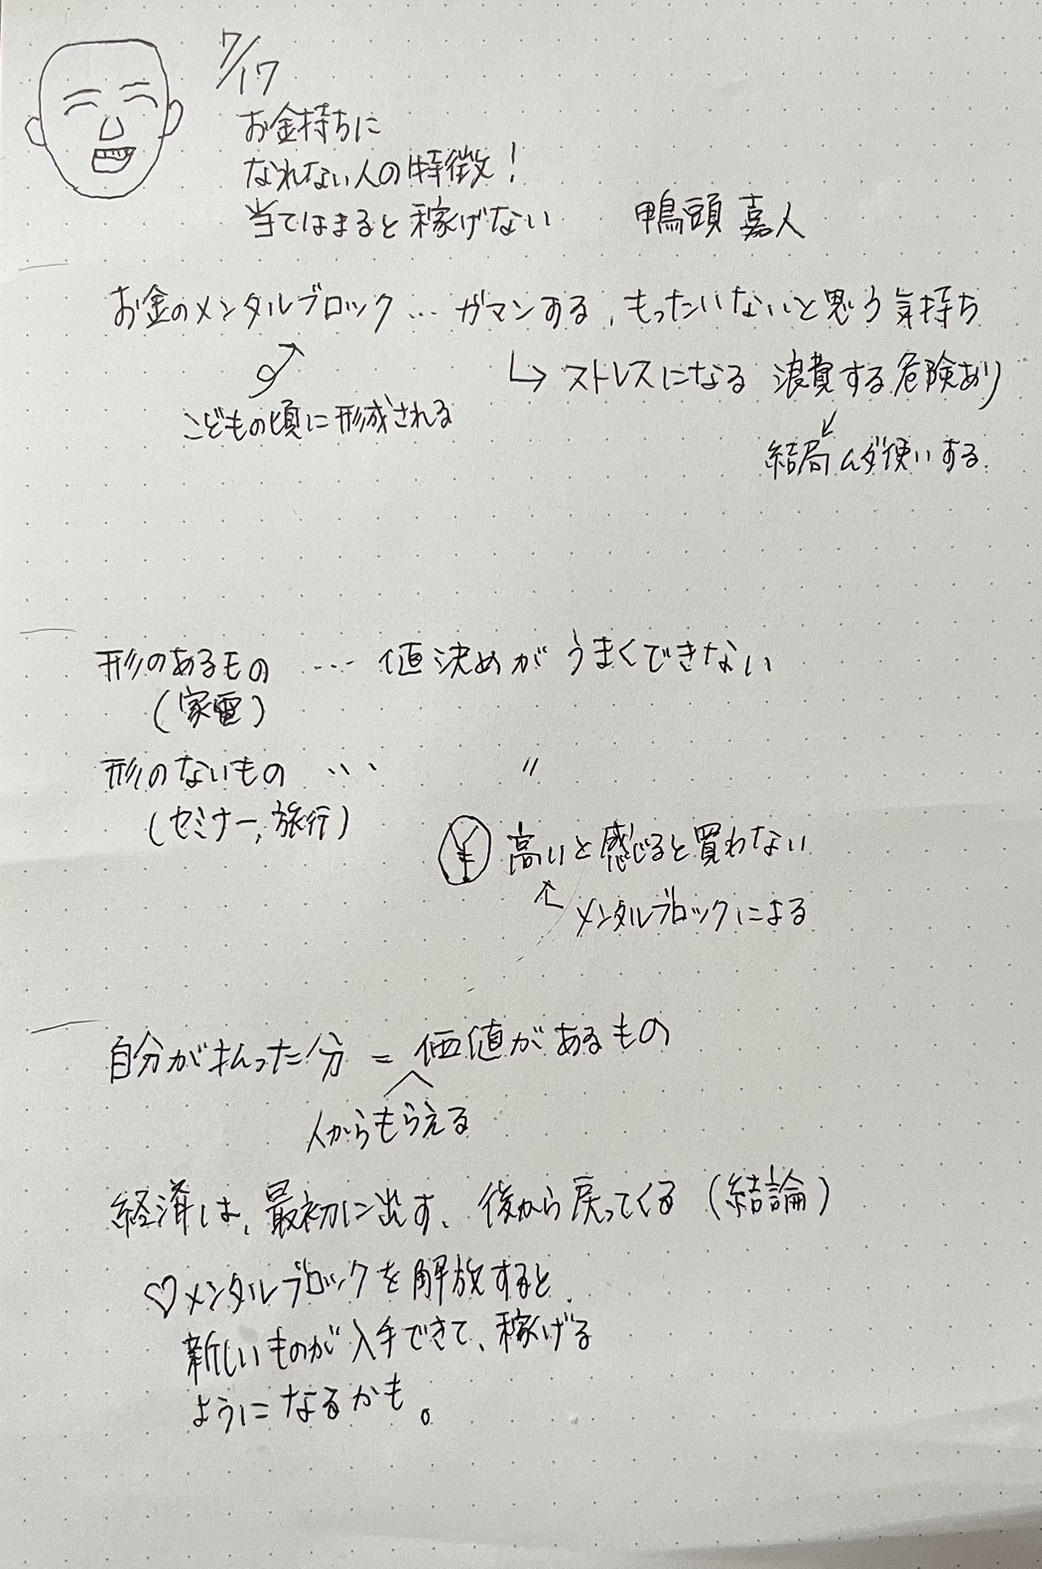 7/17
お金持ちに
なれない人の特徴!
当てはまると稼げない 鴨頭 嘉人
お金のメンタルブロック… ガマンする、もったいないと思う気持ち
↳ストレスになる 浪費する危険あり
こどもの頃に形成される
結局ムダ使いする.
形のあるもの … 値決めが うまくできない
(家電)
形のないもの … 〃
(セミナー,旅行)
¥ 高いと感じると買わない
メンタルブロックによる
自分が払った分 = 価値があるもの
人からもらえる
経済は、最初に出す、後から戻ってくる (結論)
♡メンタルブロックを解放すると
新しいものが入手できて、稼げる
ようになるかも。